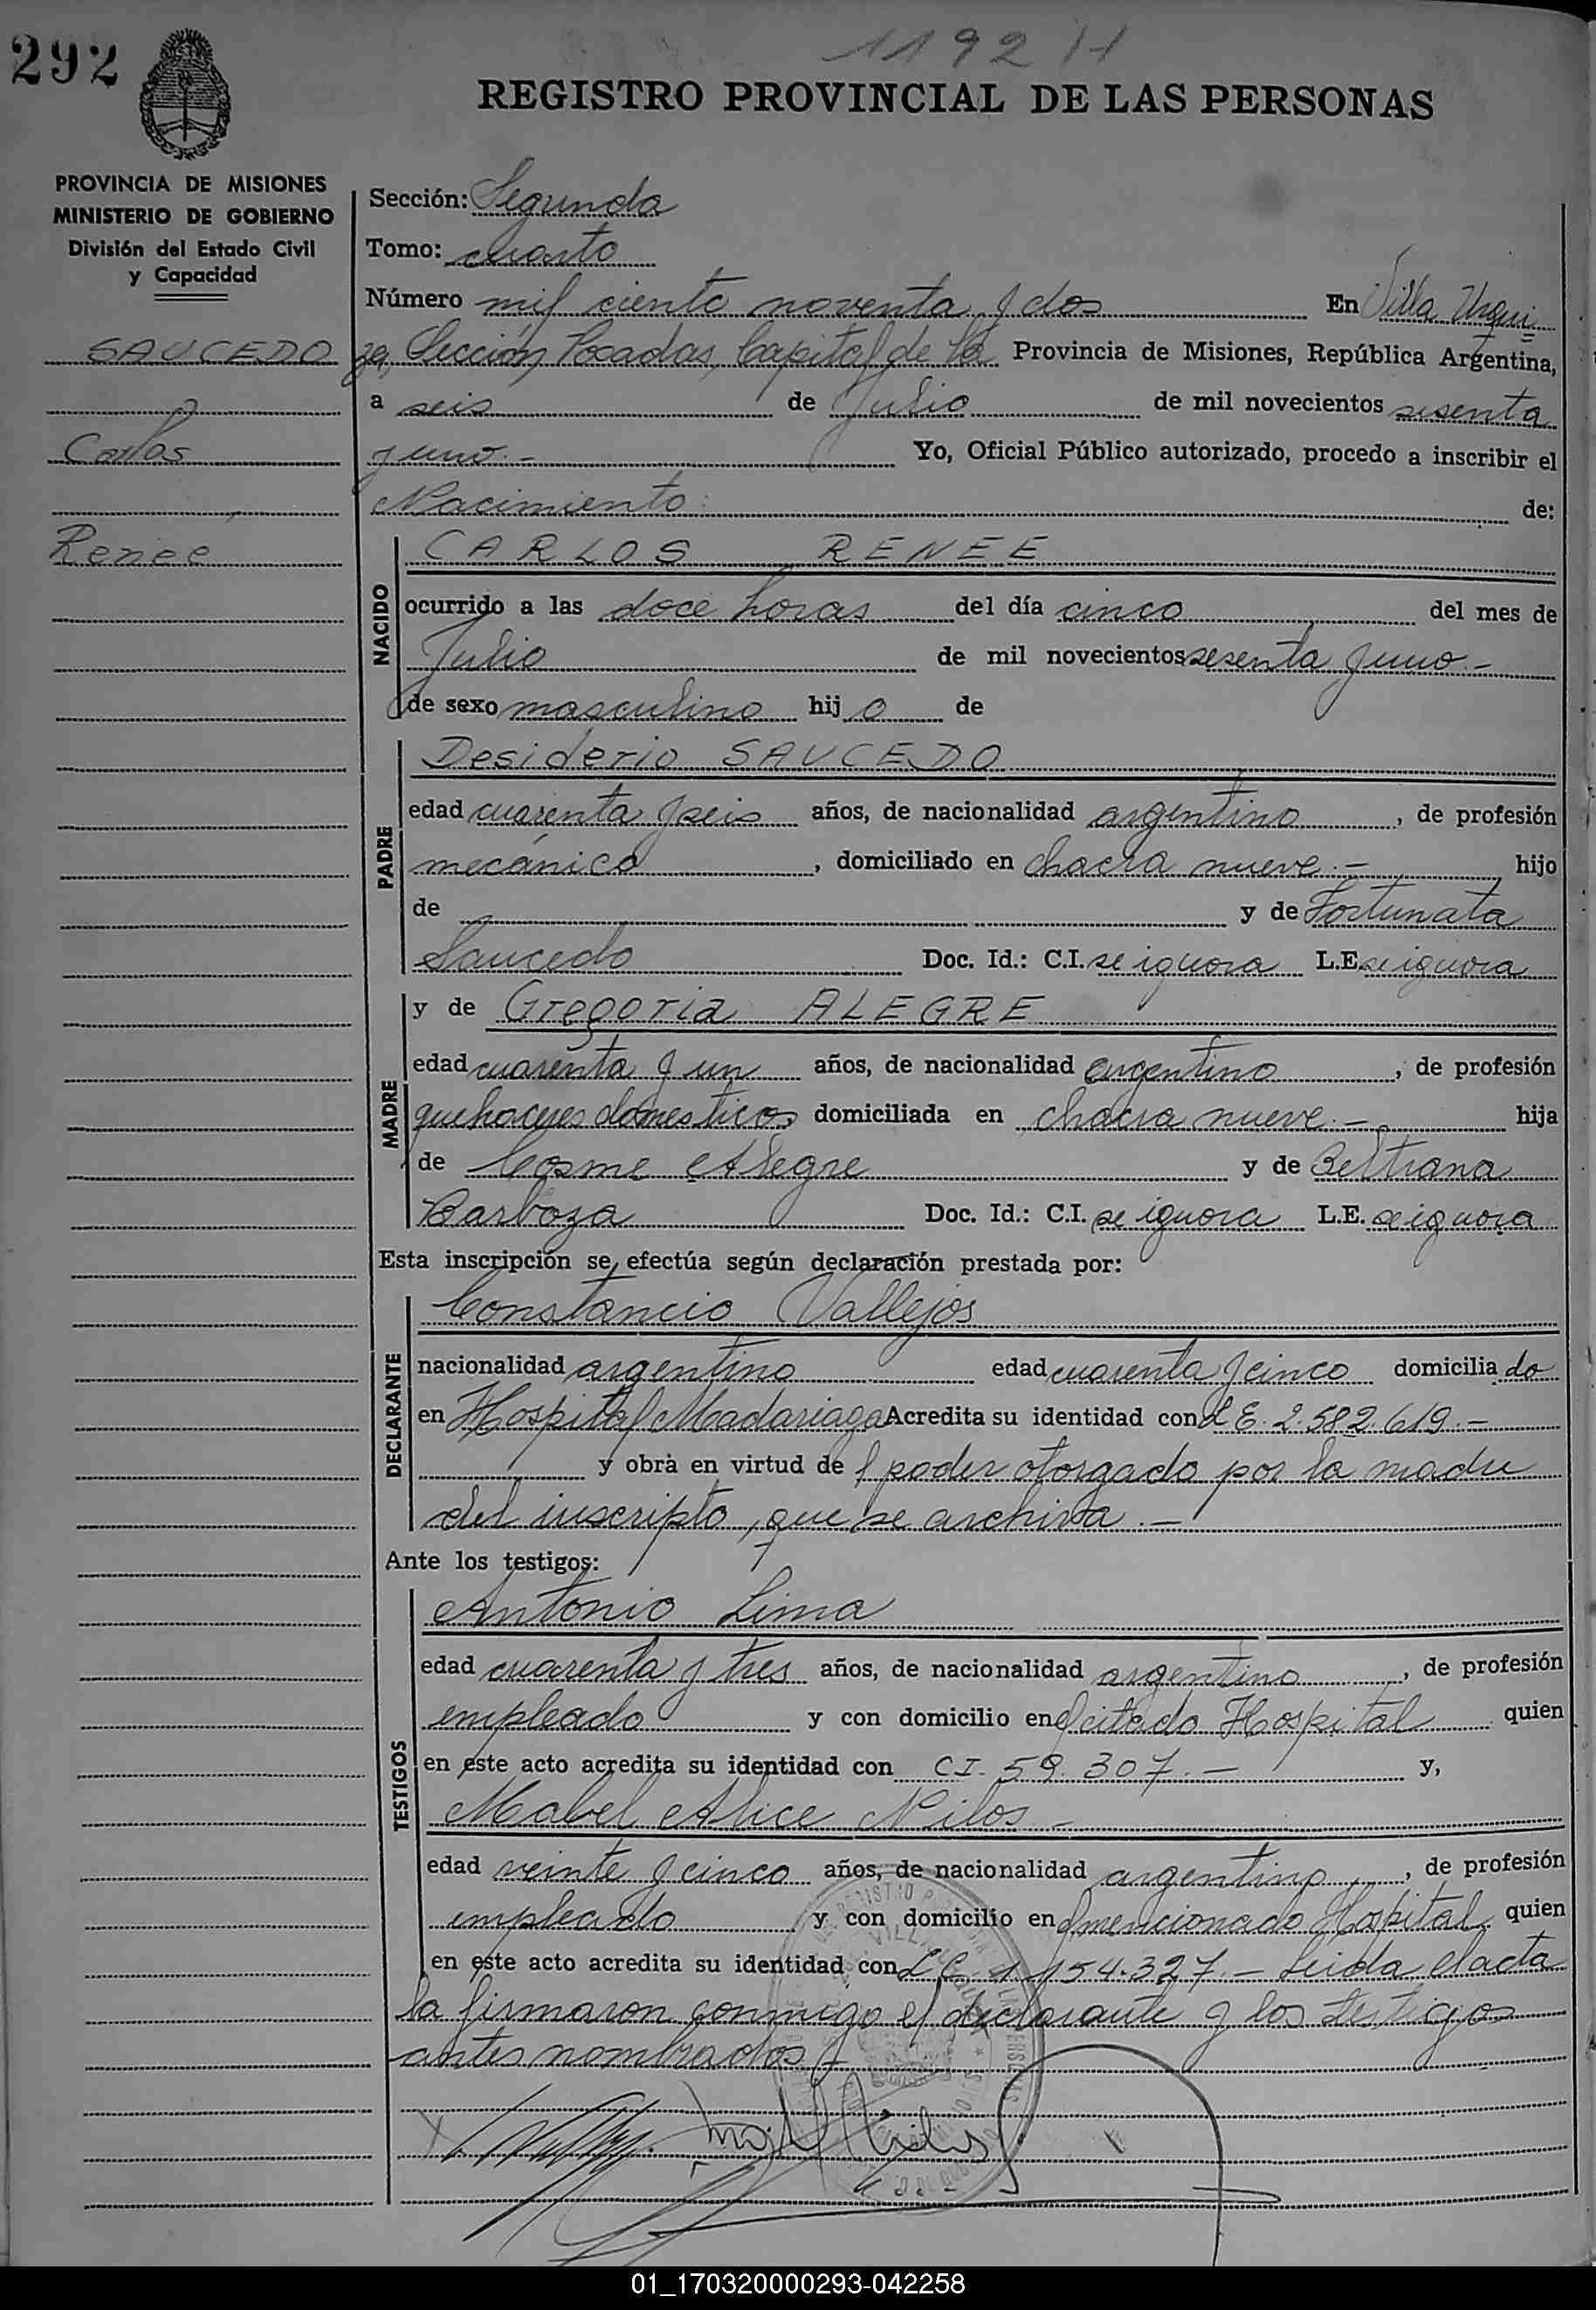 292
1192 H
REGISTRO PROVINCIAL DE LAS PERSONAS
PROVINCIA DE MISIONES
MINISTERIO DE GOBIERNO
División del Estado Civil
y Capacidad
SAUCEDO
Carlos
Reneé
Sección: Segunda
Tomo: cuarto
Número mil ciento noventa y dos En Villa Urqui
za, Sección Posadas, Capital de la Provincia de Misiones, República Argentina,
a seis de Julio de mil novecientos sesenta
y uno.- Yo, Oficial Público autorizado, procedo a inscribir el
Nacimiento: de:
NACIDO
CARLOS RENEE
ocurrido a las doce horas del día cinco del mes de
Julio de mil novecientos sesenta y uno.-
de sexo masculino hijo de
PADRE
Desiderio SAUCEDO
edad cuarenta y seis años, de nacionalidad argentino, de profesión
mecánico, domiciliado en chacra nueve.- hijo
de y de Fortunata
Saucedo Doc. Id.: C.I. se ignora L.E. se ignora
MADRE
y de Gregoria ALEGRE
edad cuarenta y un años, de nacionalidad argentino, de profesión
quehaceres domesticos domiciliada en chacra nueve.- hija
de Cosme Alegre y de Beltrana
Barboza Doc. Id.: C.I. se ignora L.E. se ignora
Esta inscripción se efectúa según declaración prestada por:
DECLARANTE
Constancio Vallejos
nacionalidad argentino edad cuarenta y cinco domiciliado
en Hospital Madariaga Acredita su identidad con L E. 2.582.619.-
y obra en virtud del poder otorgado por la madre
del inscripto, que se archiva.-
Ante los testigos:
TESTIGOS
Antonio Lima
edad cuarenta y tres años, de nacionalidad argentino, de profesión
empleado y con domicilio en el citado Hospital quien
en este acto acredita su identidad con C I. 59.307.- y,
Mabel Alice Nilos -
edad veinte y cinco años, de nacionalidad argentino, de profesión
empleado y con domicilio en el mencionado Hospital quien
en este acto acredita su identidad con L C 1.154.327.- Leida el acta
la firmaron conmigo el declarante y los testigos
antes nombrados.-
01_170320000293-042258